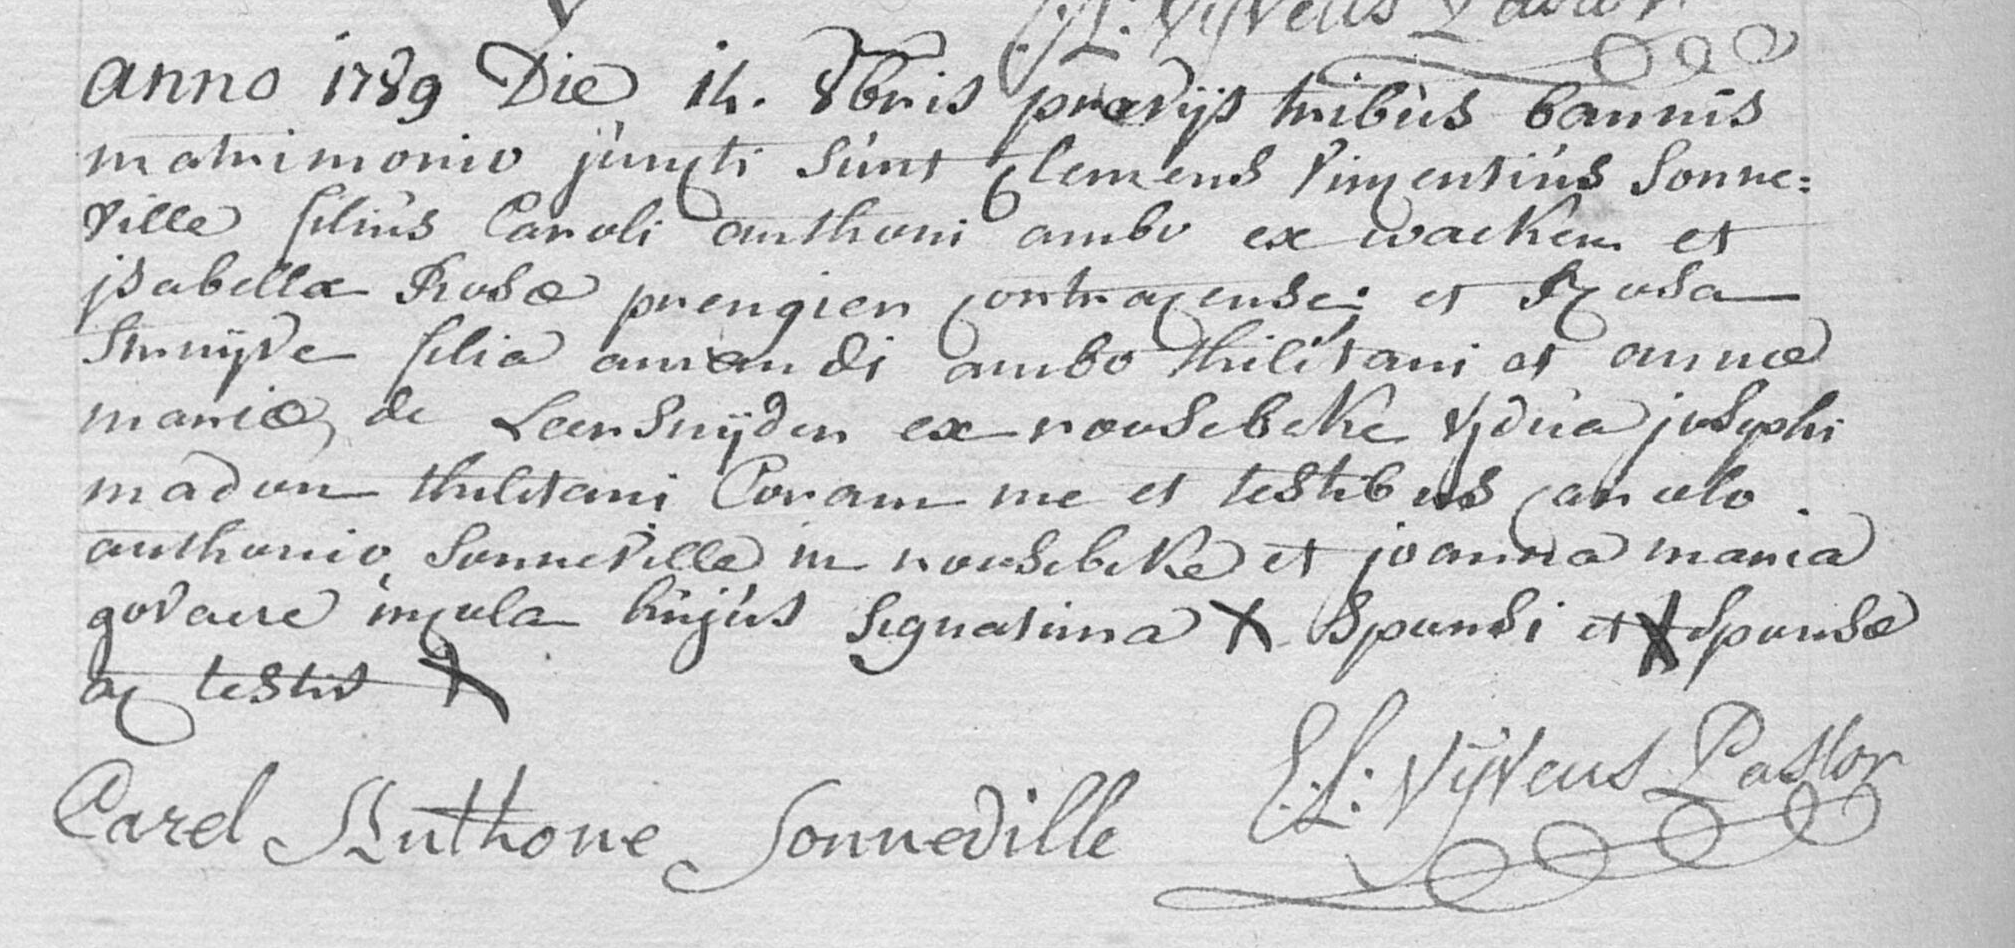 E: L: Vyveus Pastor
anno 1789 Die 14. 8bris prævijs tribùs bannis
matrimonio jùncti sùnt Clemens Vincentiùs Sonne=
ville filiùs Caroli anthoni ambo ex wacken et
jsabellæ Rosæ prengier Cortracense: et Rosa
Strùijve filia amandi ambo thiletani et annæ
mariæ de Leersnijder ex rousebeke Vidùa josephi
madou thiletani Coram me et testibus Carolo
anthonio Sonneville in rousebeke et joanna maria
govaere incola hùjùs Signatùra X Sponsi et X Sponsæ
ac testis X
Carel Anthone Sonneville
E: L: Vyveus Pastor